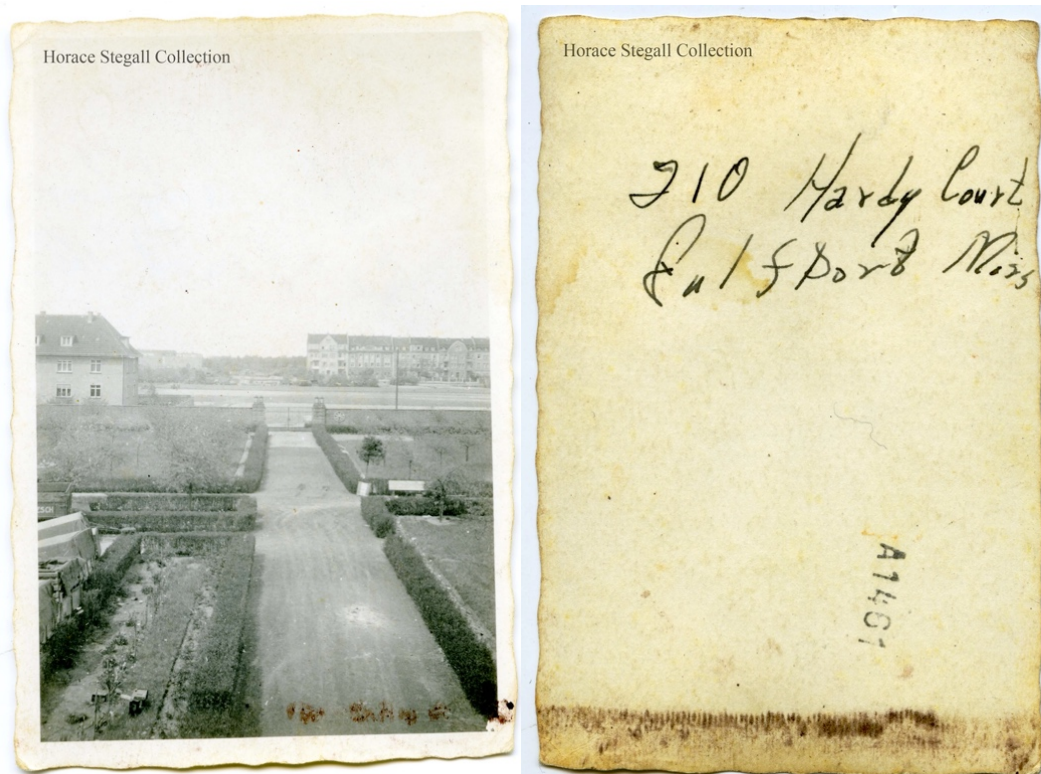 Horace Stegall Collection
Horace Stegall Collection
210 Hardy Court
Gulfport Miss
A1461